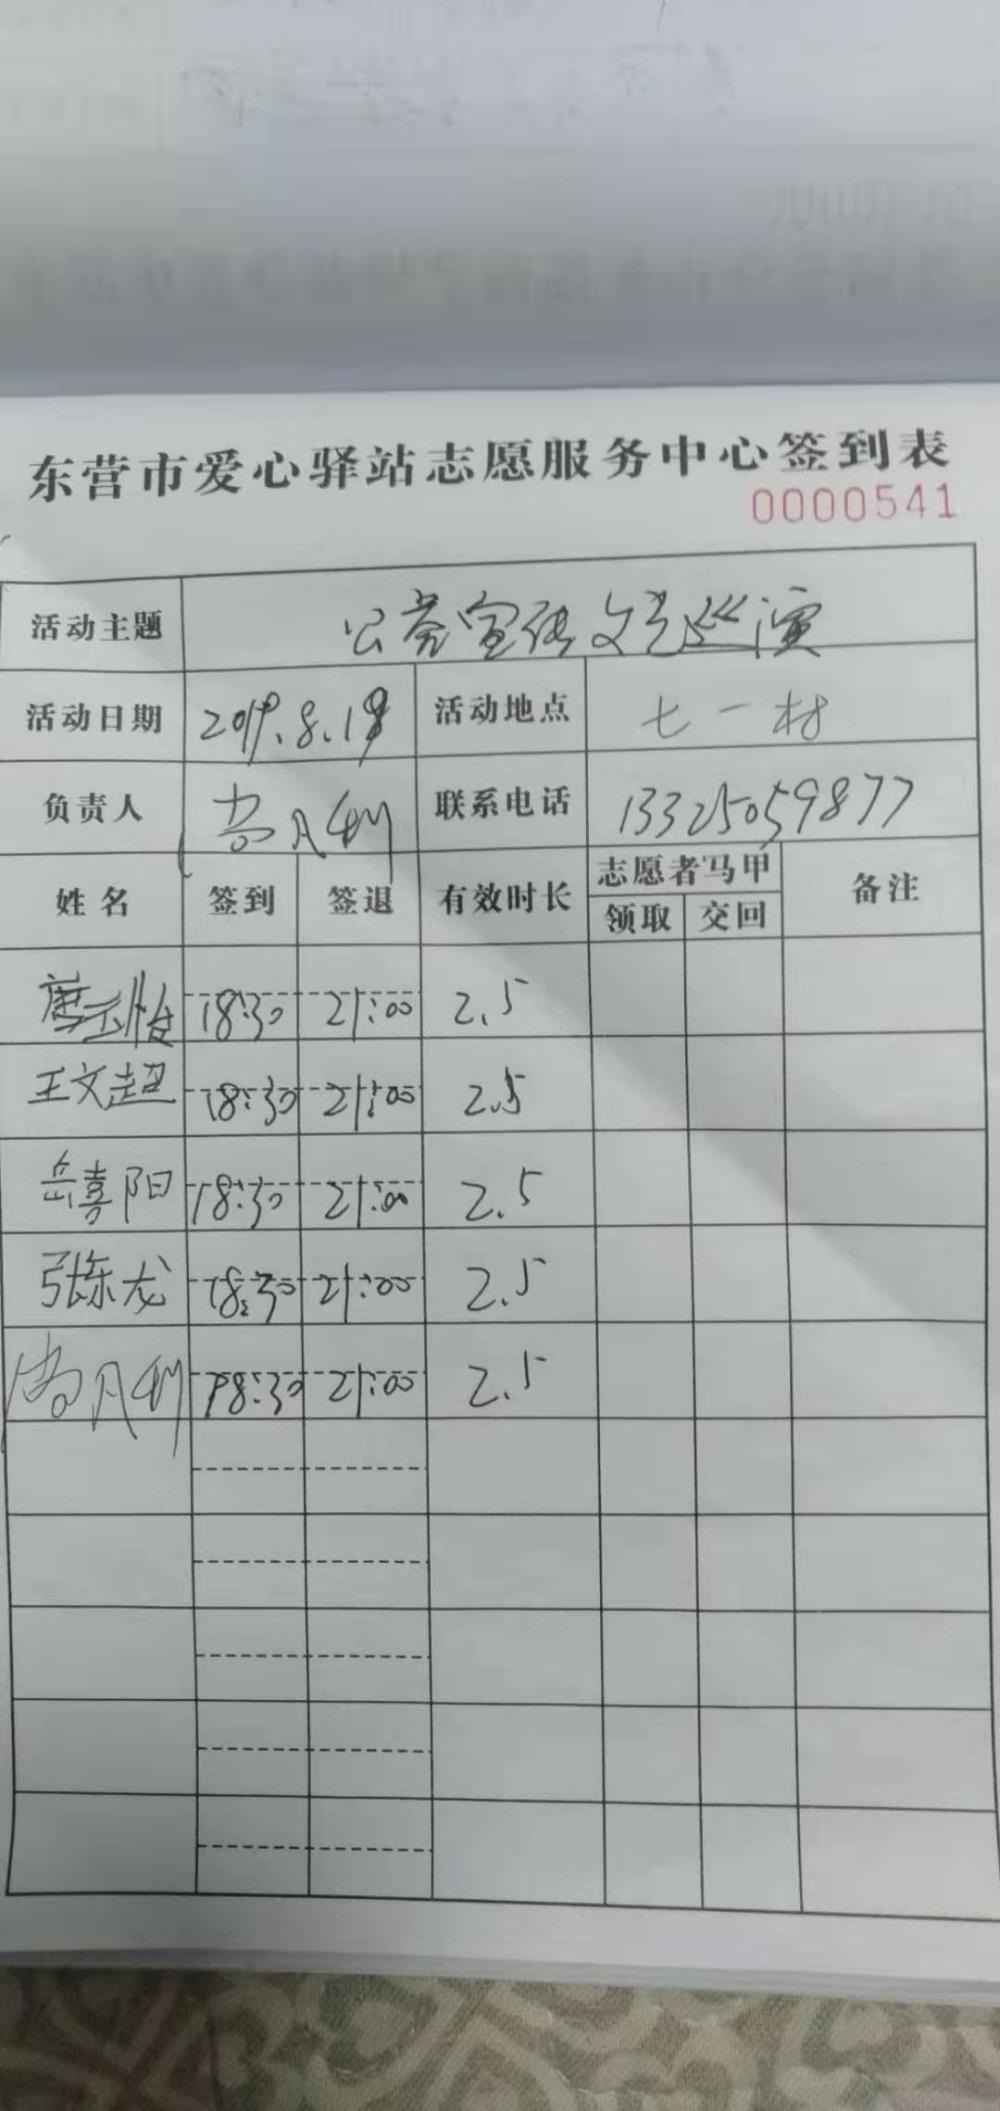 东营市爱心驿站志愿服务中心签到表
0000541
活动主题 公益宣传文艺巡演
活动日期 2019.8.19 活动地点 七一村
负责人 尚凡利 联系电话 13325059877
姓名 签到 签退 有效时长 志愿者马甲 备注
领取 交回
唐云怡 18:30 21:00 2.5
王文超 18:30 21:00 2.5
岳喜阳 18:30 21:00 2.5
张东龙 18:30 21:00 2.5
尚凡利 18:30 21:00 2.5